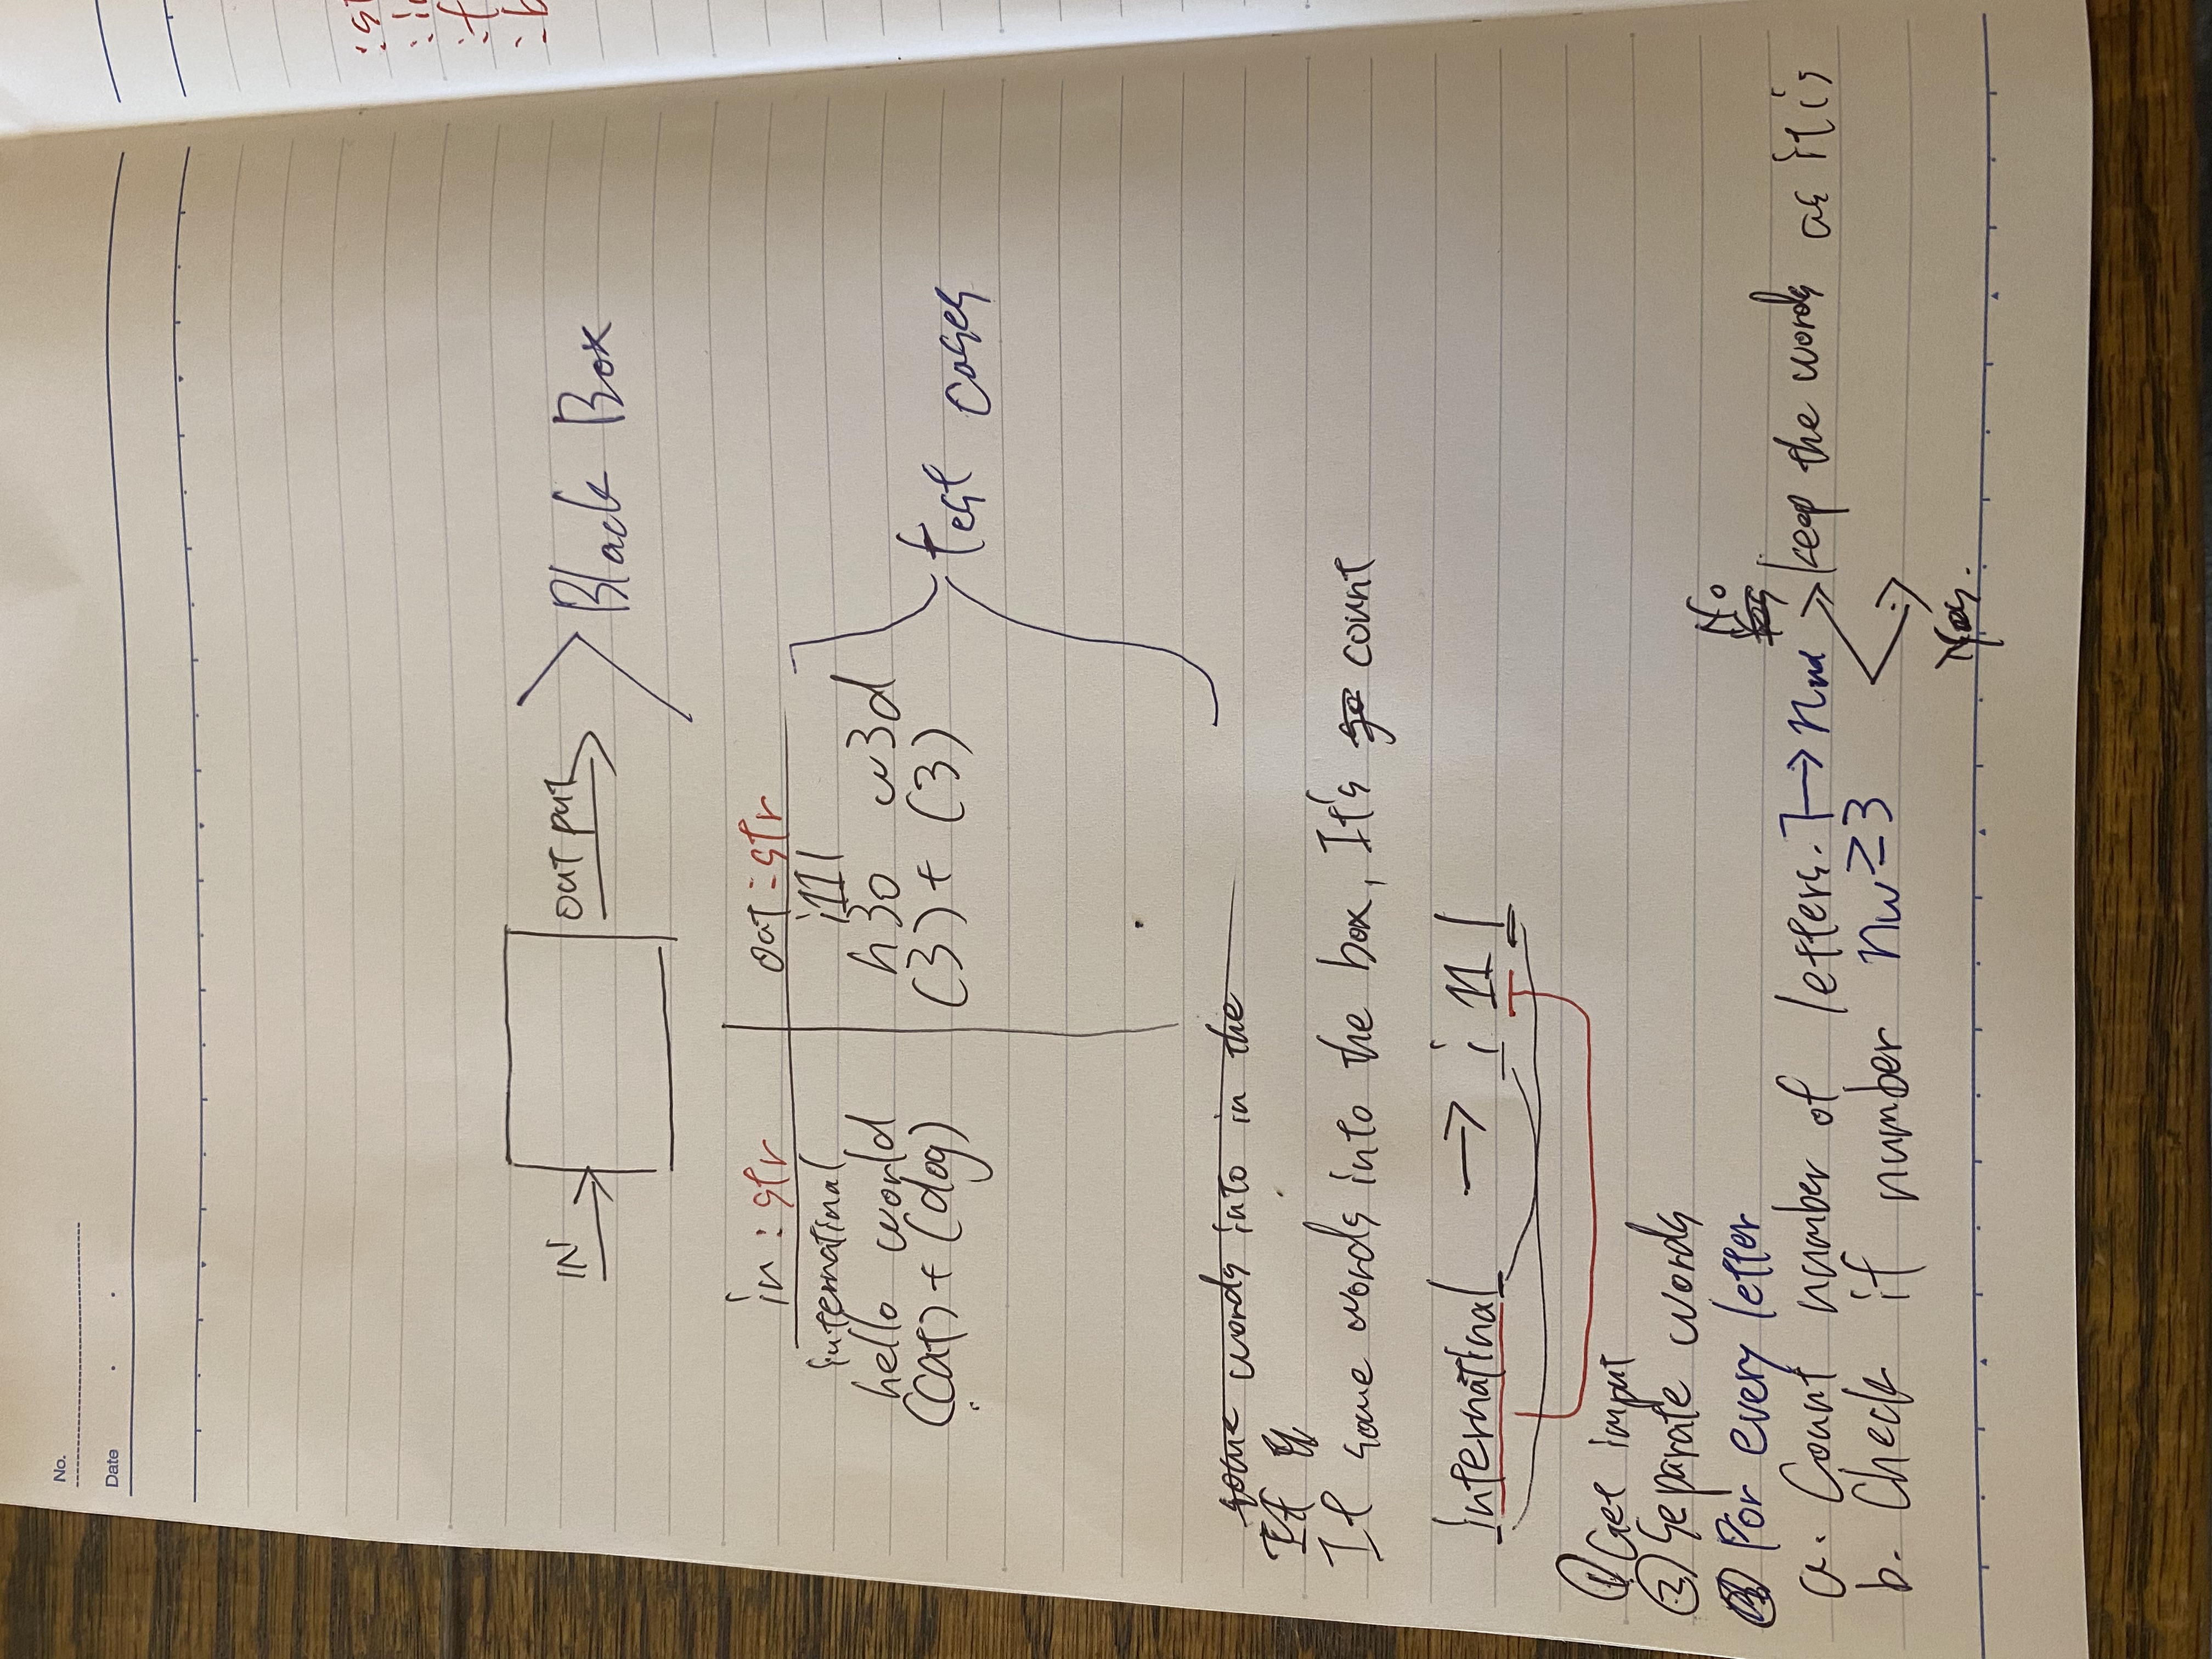 No.
Date
IN
OUTPUT
Black Box
in : str
out : str
internatinal
i11l
hello world
h3o w3d
(cat) + (dog)
(3) + (3)
test cases
some words into in the
If
If some words into the box, It's go count
internatinal → i 11 l
① Get imput
② Separate words
For every letter
a. Count number of letters. → nw
b. Check if number nw ≥ 3
No
Yes
keep the words as it is
Yes.